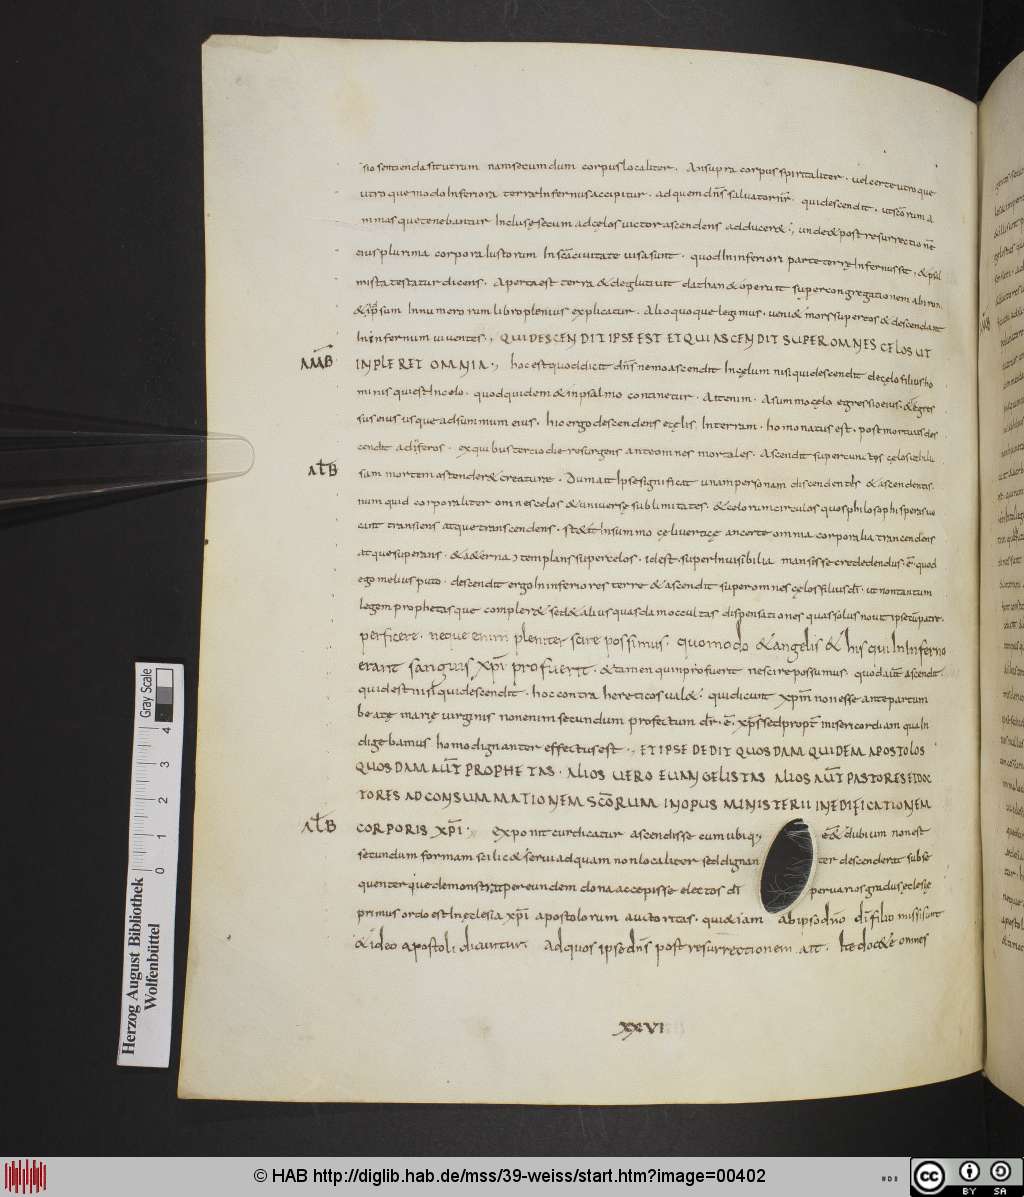 sio sentienda sit utrum nam secundum corpus localiter. An supra corpus spiritaliter. uel certe utroque
utroque modo Inferiora terrae Infernus accipitur. ad quem dn̄s saluator nr̄. qui descendit. ut sc̄orum a
nimas quę tenebantur Inclusę secum ad cęlos uictor ascendens adducer&. unde & post resurrectionē
eius plurima corpora Iustorum In sc̄a ciuitate uisa sunt. quod In inferiori parte terrę Infernus sit, & psal
mista testatur dicens. Aperta est terra & degluttiuit dathan & operuit super congregationem abiron.
& ip̄sum In numerorum libro plenius explicatur. Alio quoque legimus. ueni& mors super eos & descendant
In infernum uiuentes. QUI DESCENDIT IPSE EST ET QUI ASCENDIT SUPER OMNES CELOS UT
AMB INPLERET OMNIA. hoc est quod dicit dn̄s nemo ascendit In cęlum nisi qui descendit de cęlo filius ho
minis qui est In celo. quod quidem & in psalmo continetur. Ait enim. A summo cęlo egressio eius. & egres
sus eius usque ad summum eius. hic ergo descendens e cęlis In terram. homo natus est. post mortuus des
cendit ad Inferos. ex quibus tercio die resurgens ante omnes mortales. Ascendit super cunctos cęlos
ALB sam mortem ostender& creaturę. Dum ait Ipse significat unam personam discendentis & ascendentis.
num quid corporaliter omnes celos & uniuerse sublimitates. & celorum circulos quos philosophi speras uo
cant transiens atque transcendens. st&it In summo ancerte omnia corporalia trancendens
atque superans. & a&erna templans super celos. Id est. super Inuisibilia mansisse credendus ē. quod
ego melius puto. descendit ergo In inferiores terre & ascendit super omnes cęlos filius dī. ut non tantum
legem prophetasque compler& sed & alius quasdam occultas dispensationes quas solus nouit ipse cum patre.
perficere. neque enim pleniter scire possimus. quomodo & angelis & his qui In Inferno
erant sanguis xp̄i profuerit. & tamen quin profuerit nescire possumus. quod aut̄ ascendit.
quid est nisi qui descendit. hoc contra hereticos ual&. qui dicunt xp̄m non esse ante partum
beatę marię uirginis non enim secundum profectum dī ē. xp̄s sed propt̄ misericordiam qua In
digebamus homo dignanter effectus est. ET IPSE DEDIT QUOSDAM QUIDEM APOSTOLOS
QUOSDAM AUT̄ PROPHETAS. ALIOS UERO EUANGELISTAS ALIOS AUT̄ PASTORES ET DOC
TORES AD CONSUMMATIONEM SC̄ORUM IN OPUS MINISTERII IN EDIFICATIONEM
ALB CORPORIS XP̄I. exponit cur dicatur ascendisse cum ubiq; ē & dubium non est
secundum formam scilic& serui ad quam non localiter sed dignan ter descenderit subse
quenter que demonstrat per eundem dona accepisse electos dī per uarios gradus ęclesię
primus ordo est In ęclesia xp̄i apostolorum auctoritas. qui &iam ab ipso dn̄o dī filio missi sunt
& ideo apostoli dicuntur. Ad quos ipse dn̄s post resurrectionem ait. Ite doc&e omnes
XXVI
Herzog August Bibliothek
Wolfenbüttel
Gray Scale
0 1 2 3 4
© HAB http://diglib.hab.de/mss/39-weiss/start.htm?image=00402
cc BY SA